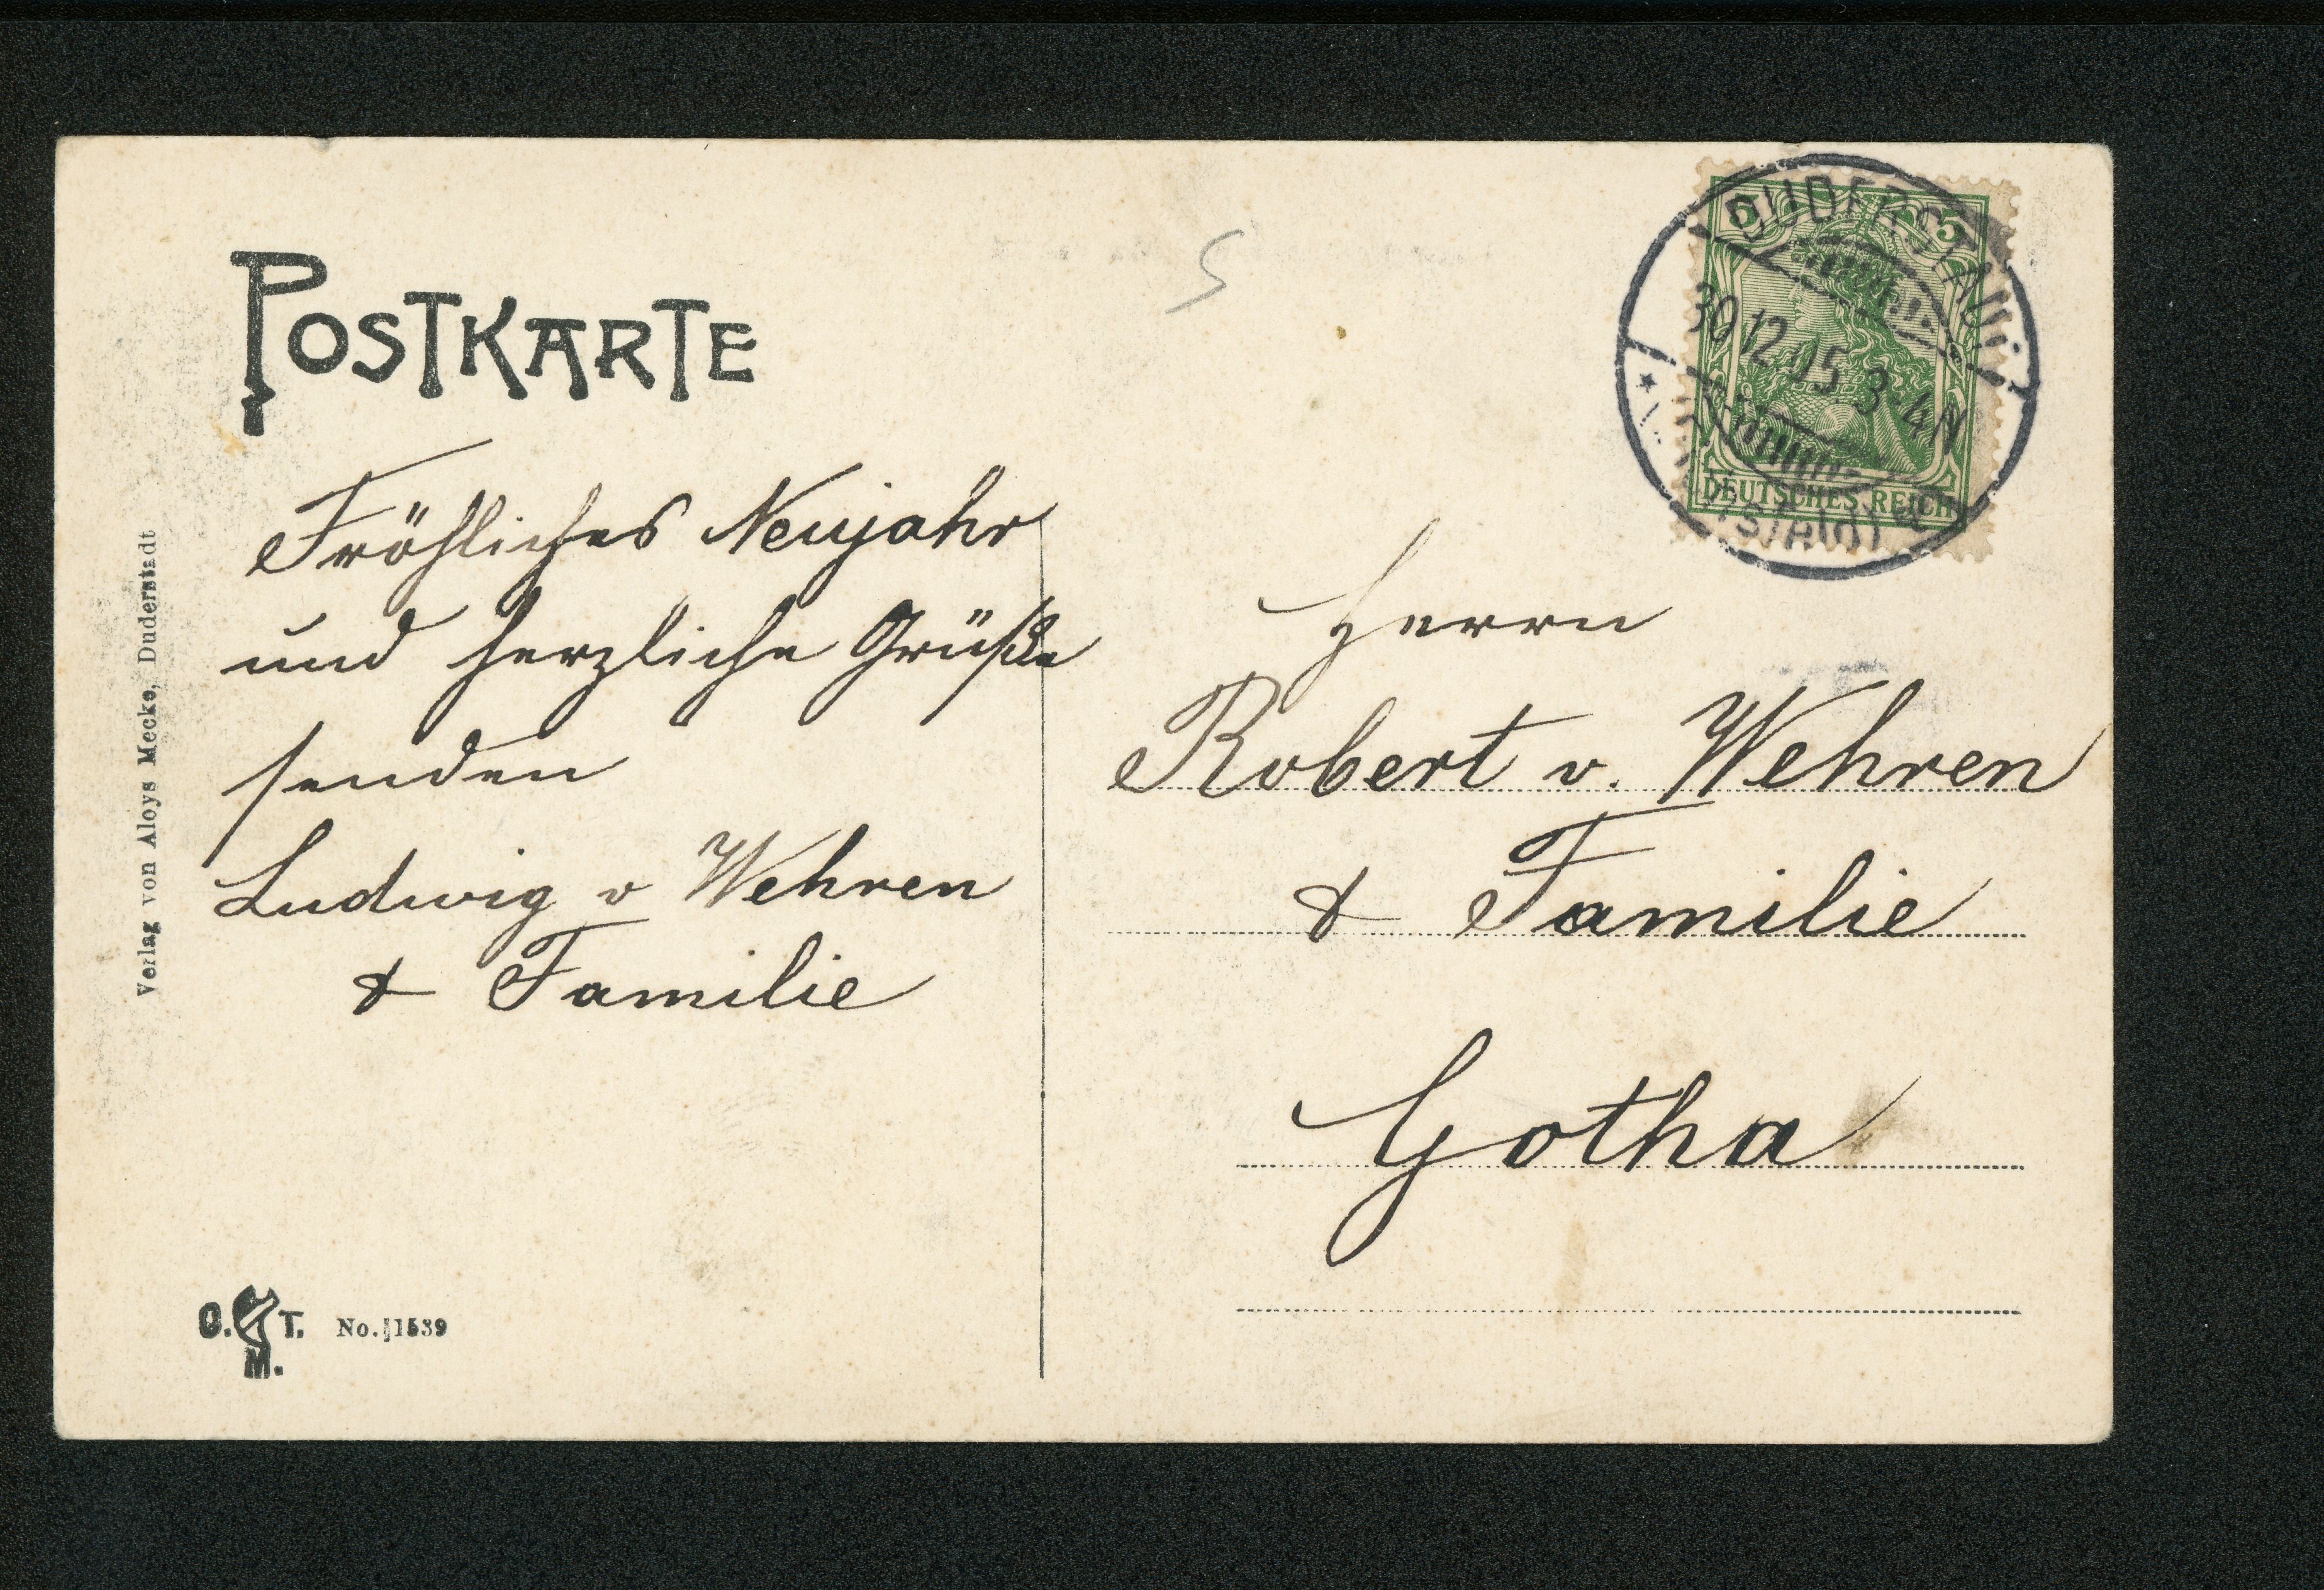 POSTKARTE
Fröhliches Neujahr
und herzliche Grüße
senden
Ludwig v Wehren
& Familie
Verlag von Aloys Mecke, Duderstadt
No. 11539
5
5 5
DEUTSCHES REICH
DUDERSTADT
30 12 05. 3-4N
Herrn
Robert v. Wehren
& Familie
Gotha